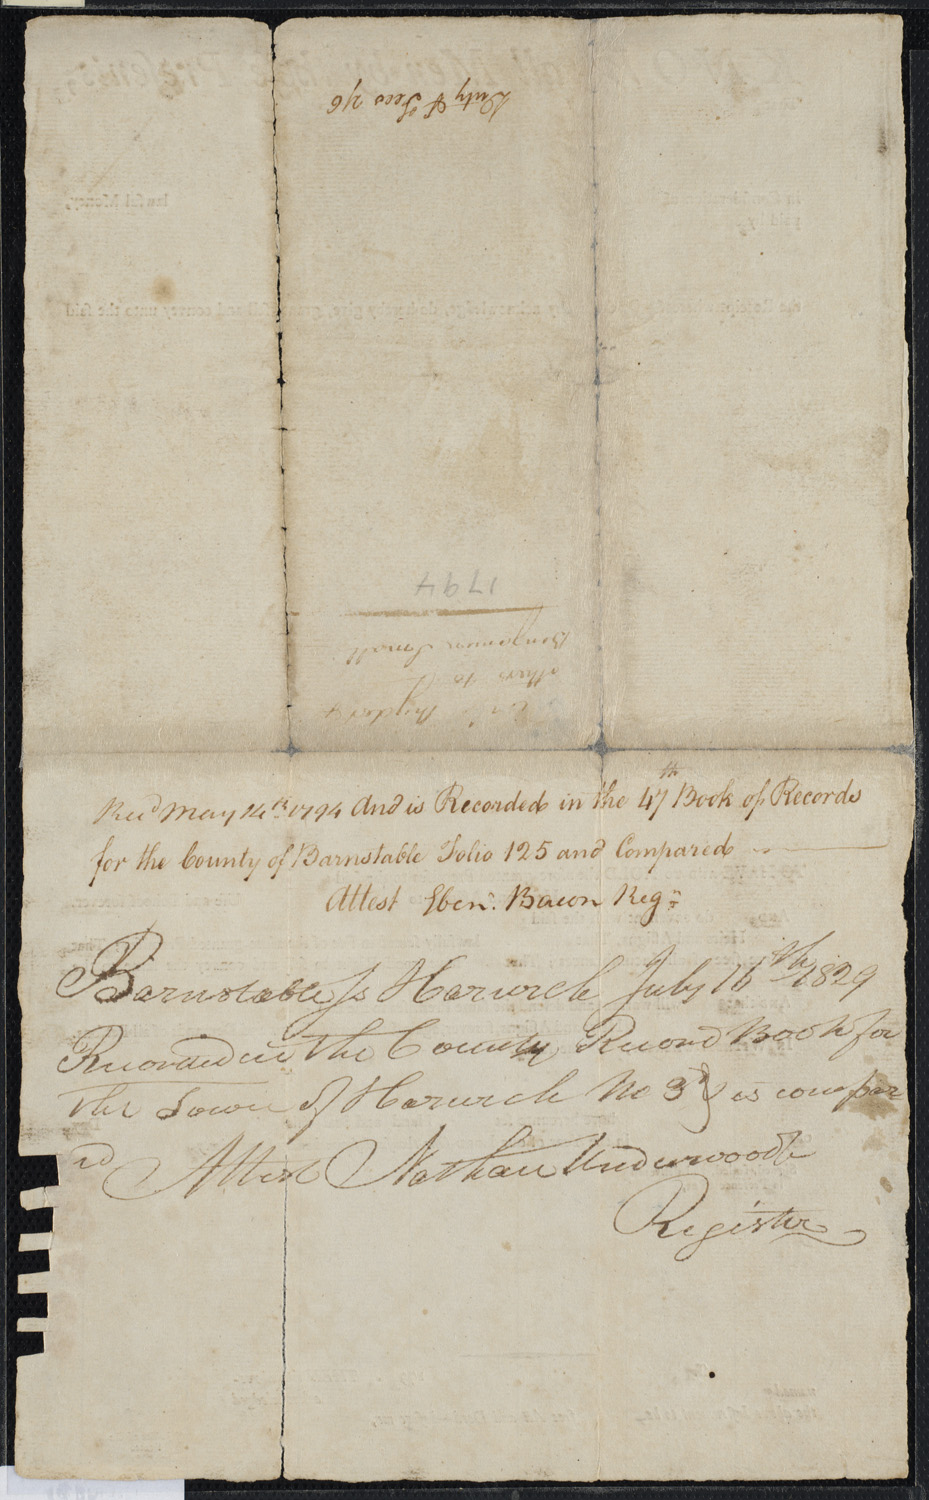 Duty & Fees 2/6
1794
others to
Benjamin Small
Recd May 14th 1794 And is Recorded in the 47th Book of Records
for the County of Barnstable Folio 125 and Compared
Attest Eben. Bacon Regr
Barnstable Ss Harwich July 16th 1829
Recorded in the County Record Book for
the Town of Harwich No 3d is compar
ed Attest Nathan Underwood
Register